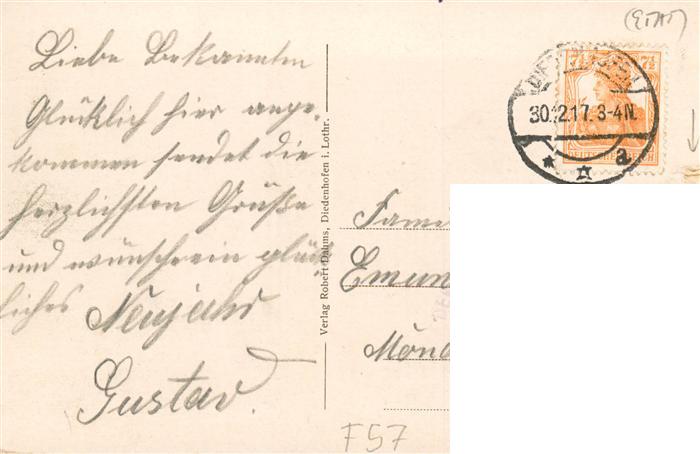 Liebe Bekannten
Glücklich hier ange-
kommen sendet die
herzlichsten Grüße
und wünsche ein glück-
liches Neujahr
Gustav.
Verlag Robert Dahms, Diedenhofen i. Lothr.
(ETAT)
7½ 7½
30.12.17. 3-4N.
* a
DEUTSCHES REICH
Mönc
F57